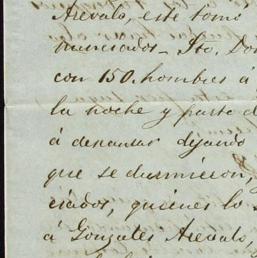 Arevalo, este tomó
nunciados_ Sto. Don
con 150. hombres á
la noche y parte d
á descansar dejando
que se durmieron,
ciados, quienes lo
á Gonzales Arevalo,